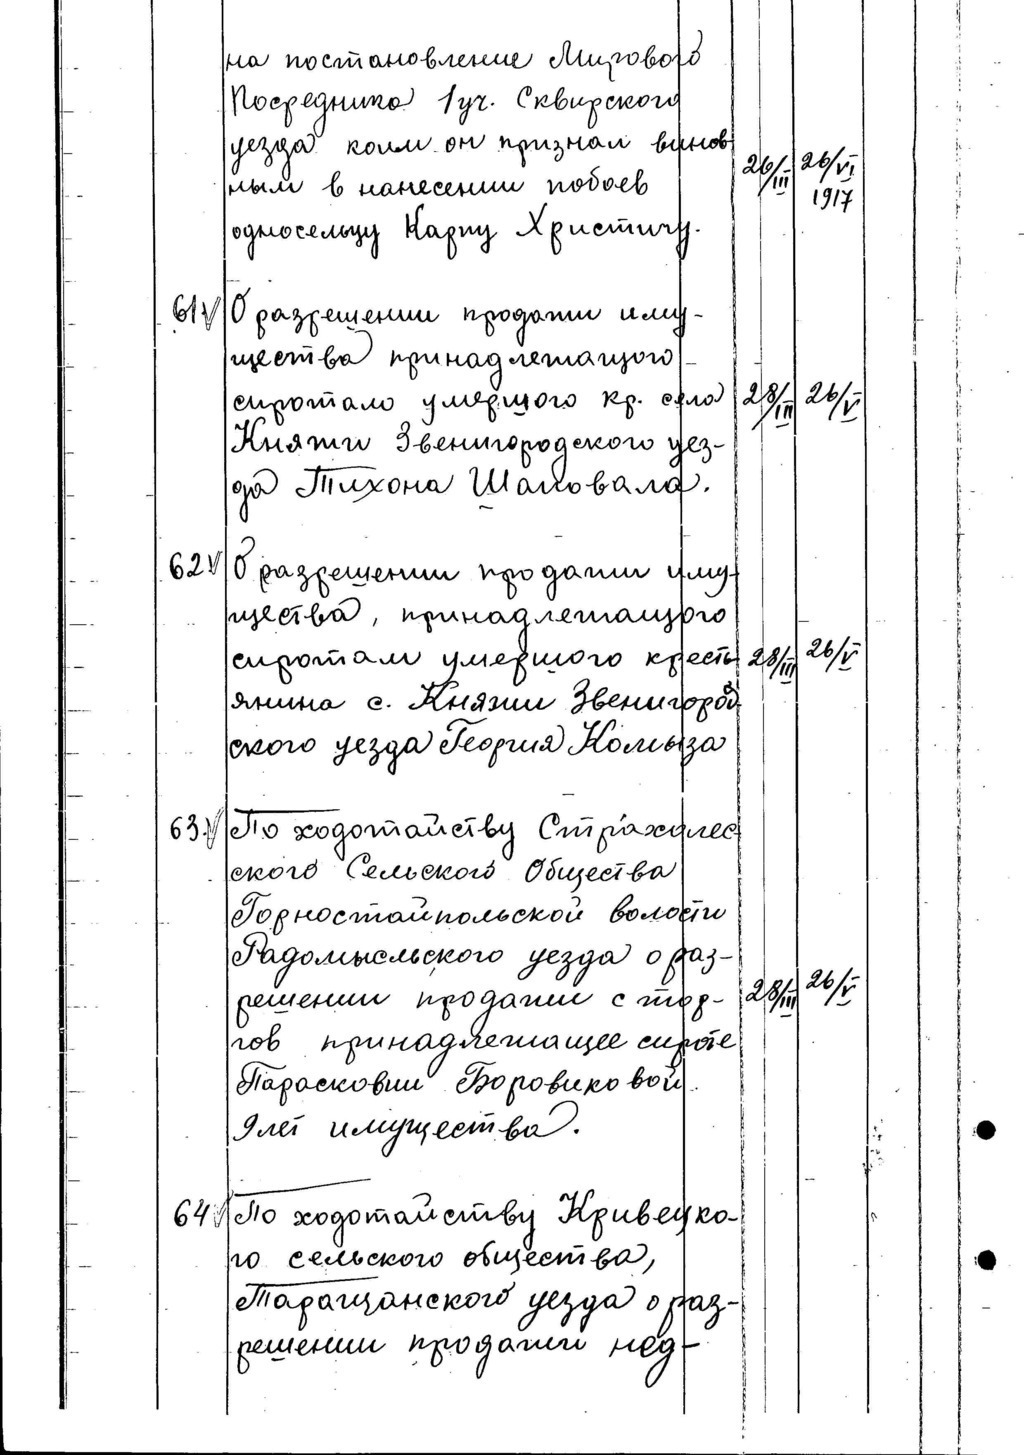 на постановление Мирового
Посредника 1 уч. Сквирского
уезда коим он признан винов
ным в нанесении побоев
односельцу Карпу Христичу.
26/III 26/VI
1917
61. О разрешении продажи иму-
щества принадлежащого
сиротам умершого кр. села
Княжи Звенигородского уез-
да Тихона Шаповала.
28/III 26/V
62. О разрешении продажи иму-
щества, принадлежащого
сиротам умершого кресть
янина с. Княжи Звенигород
ского уезда Георгия Комыза
28/III 26/V
63. По ходотайству Страхолес
ского Сельского Общества
Горностайпольской волости
Радомысльского уезда о раз-
решении продажи с тор-
гов принадлежащее сироте
Парасковии Боровиковой
9 лет имущества.
28/III 26/V
64 По ходотайству Кривецко-
го сельского общества,
Таращанского уезда о раз-
решении продажи нед-